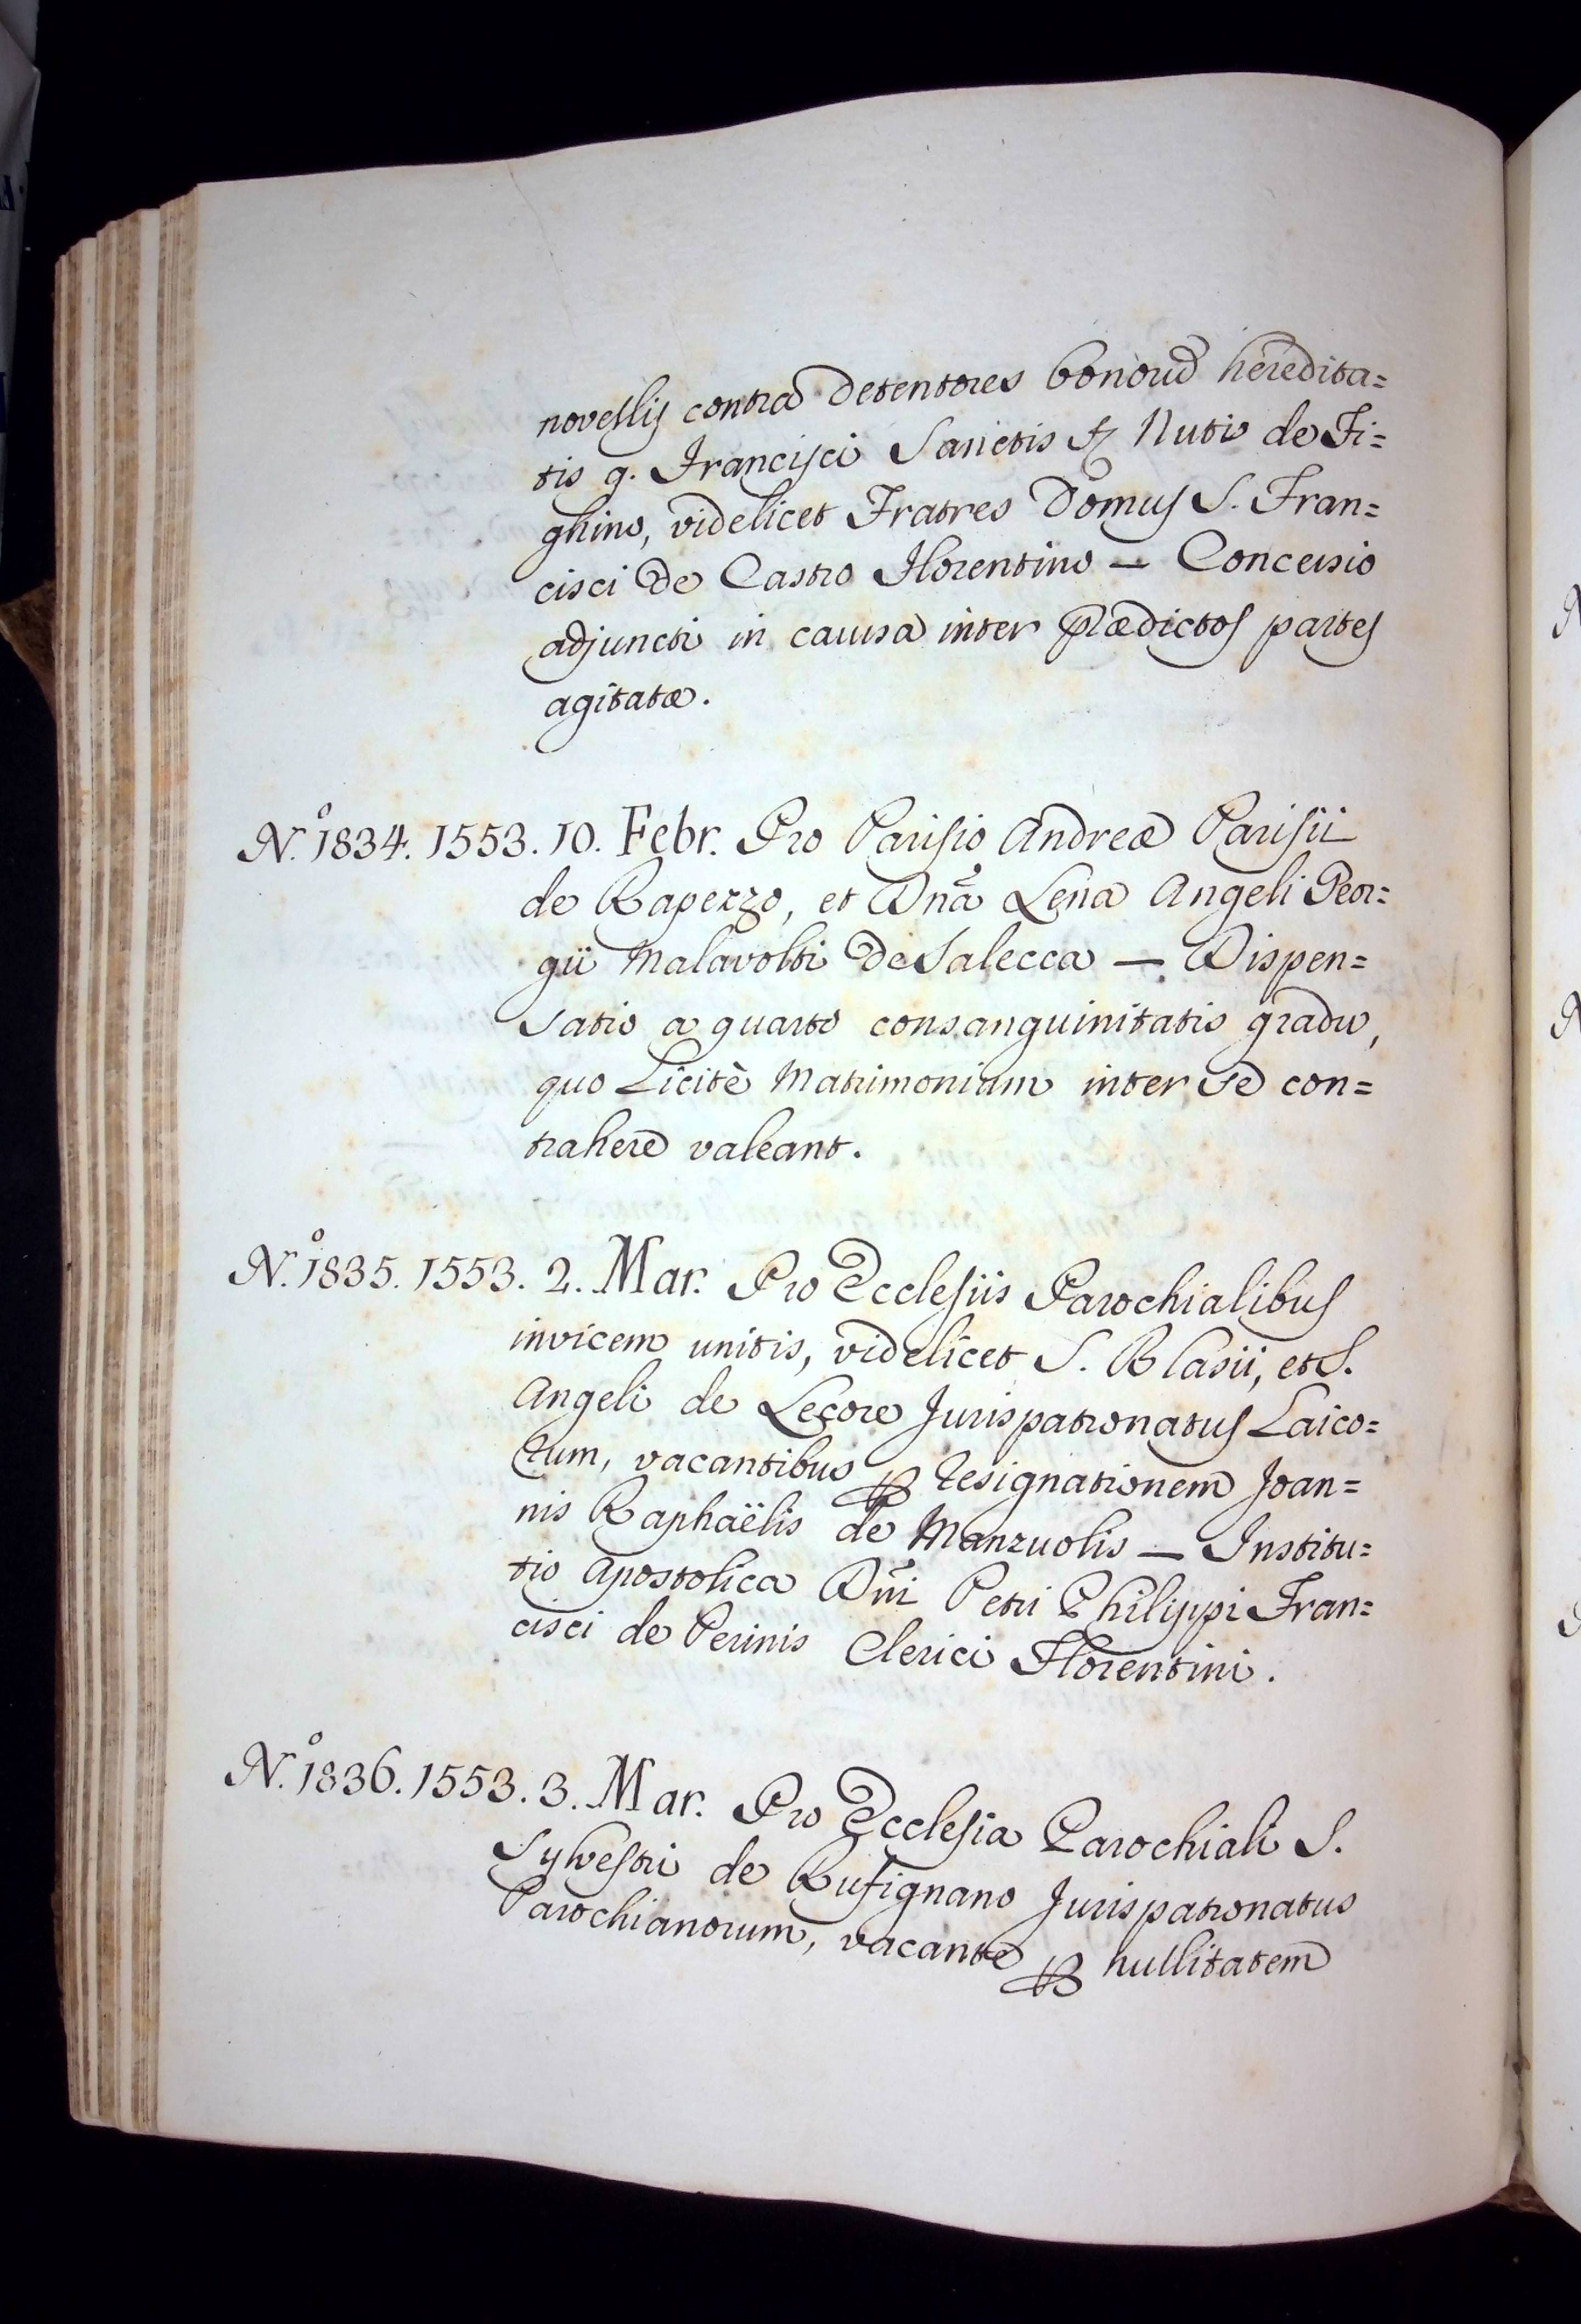 novellis contra detentores bonorū heredita=
tis q. Francisci Sanctis & Nutis de Fi=
ghino, videlicet Fratres Domus S. Fran=
cisci de Castro Florentino — Concessio
adjuncti in caussa inter prædictos partes
agitatæ.
N.º 1834. 1553. 10. Febr. Pro Parisio Andreæ Parisii
de Rapezzo, et Dnā Lena Angeli Geor=
gii Malavolti de Salecca — Dispen=
satio a quarto consanguinitatis gradu,
quo Licitè Matrimonium inter se con=
trahere valeant.
N.º 1835. 1553. 2. Mar. Pro Ecclesiis Parochialibus
invicem unitis, videlicet S. Blasii, et S.
Angeli de Lecore Jurispatronatus Laico=
rum, vacantibus ꝑ resignationem Joan=
nis Raphaëlis de Manzuolis — Institu=
tio Apostolica Dñi Petri Philippi Fran=
cisci de Perinis Clerici Florentini.
N.º 1836. 1553. 3. Mar. Pro Ecclesia Parochiali S.
Sylvestri de Rufignano Jurispatronatus
Parochianorum, vacante ꝑ nullitatem